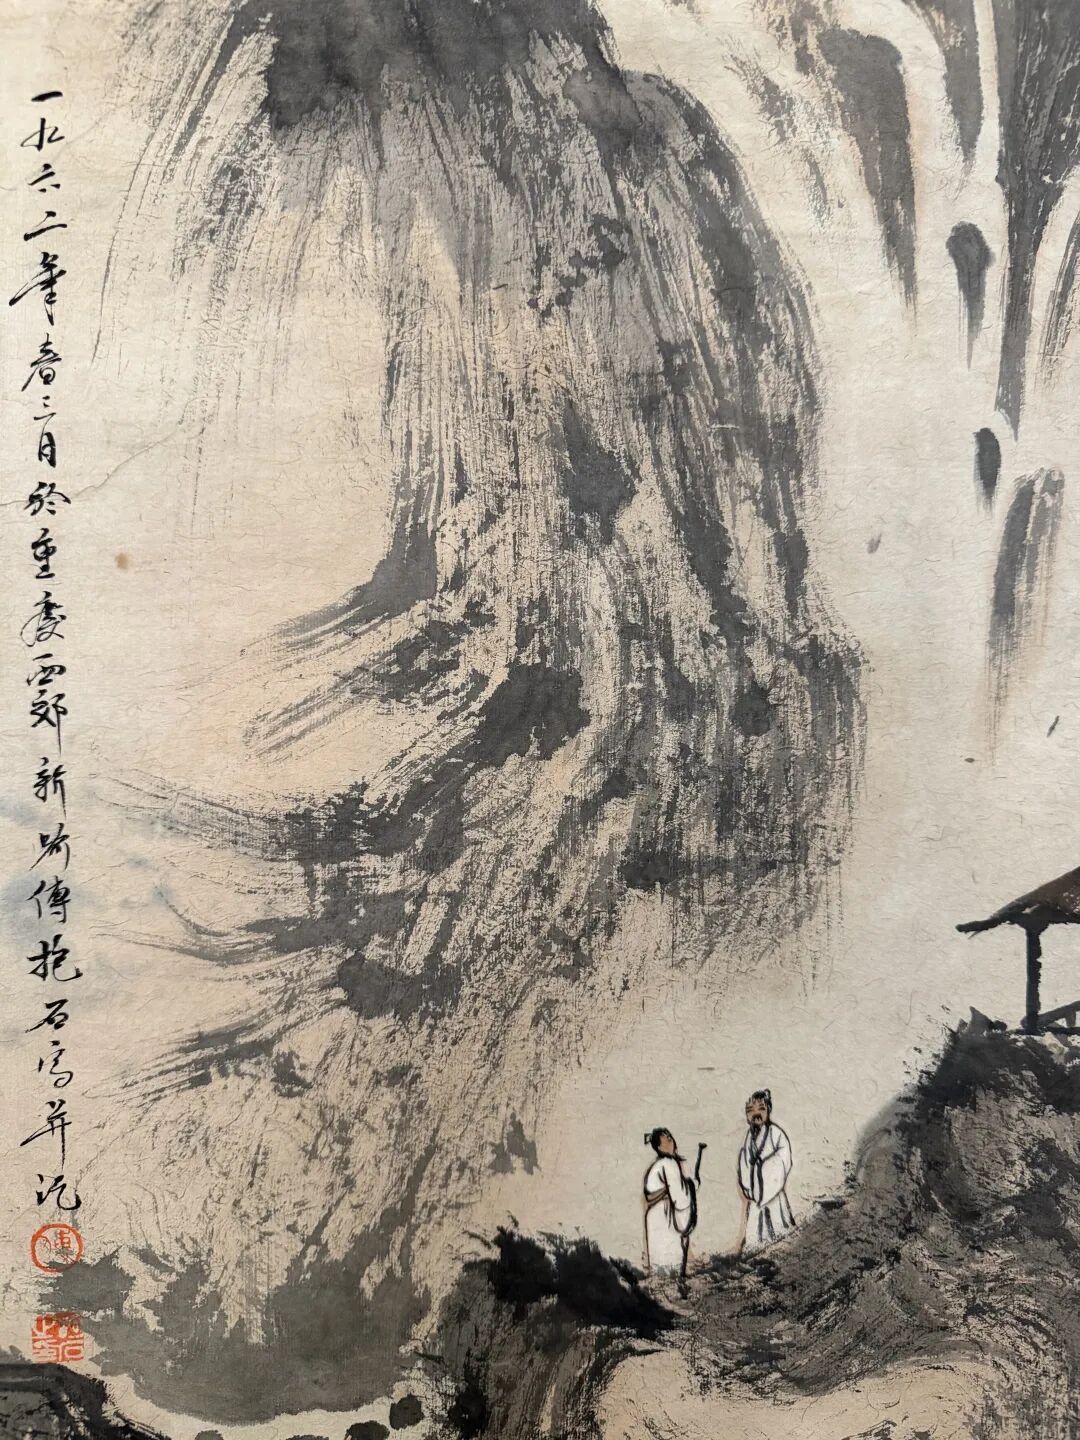 一九六二年春三月於重慶西郊新喻傅抱石寫并记